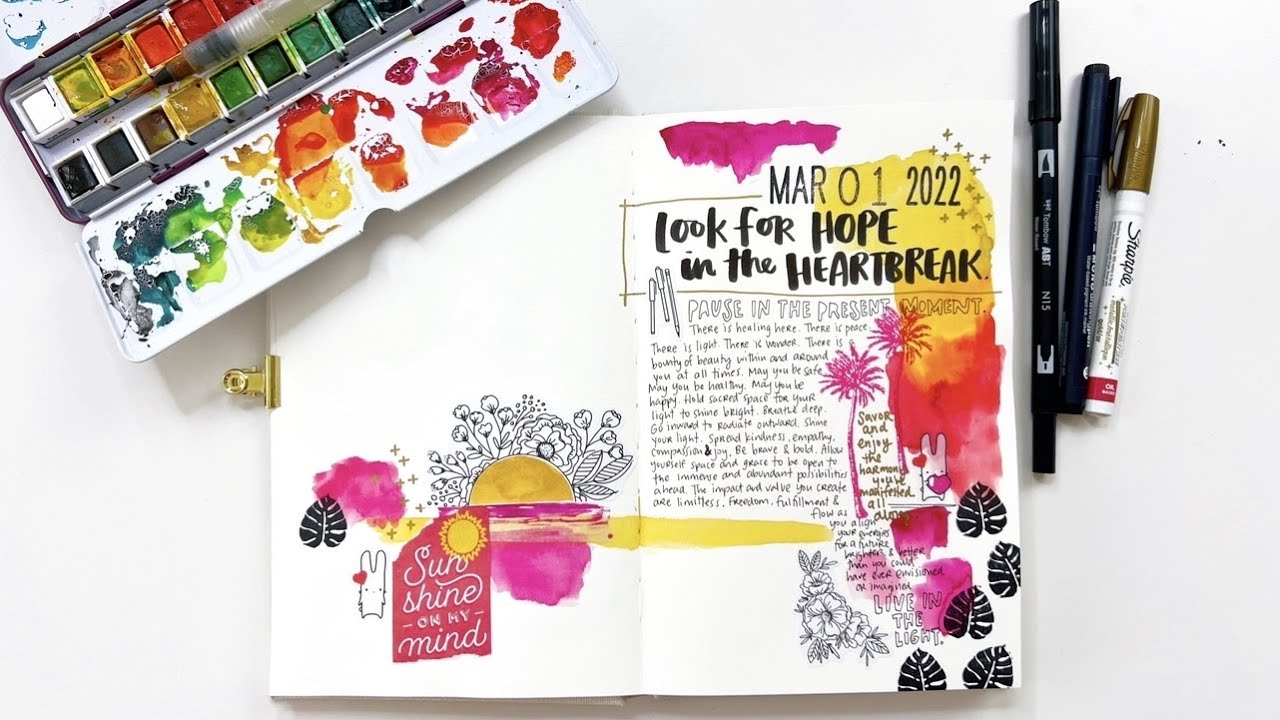 MAR 01 2022
Look for HOPE
in the HEARTBREAK.
PAUSE IN THE PRESENT MOMENT.
There is healing here. There is peace.
There is light. There is wonder. There is a
bounty of beauty within and around
you at all times. May you be safe.
May you be healthy. May you be
happy. Hold sacred space for your
light to shine bright. Breathe deep.
Go inward to radiate outward. Shine
your light. Spread kindness, empathy,
compassion & joy. Be brave & bold. Allow
yourself space and grace to be open to
the immense and abundant possibilities
ahead. The impact and value you create
are limitless. Freedom, fulfillment &
flow as
you align
your energies
for a future
brighter & better
than you could
have ever envisioned
or imagined
LIVE IN
THE
LIGHT.
Savor
and
enjoy
the
harmony
you've
manifested
all
along.
Sun
shine
- ON MY -
mind
Tombow ABT
N15
Sharpie
OIL